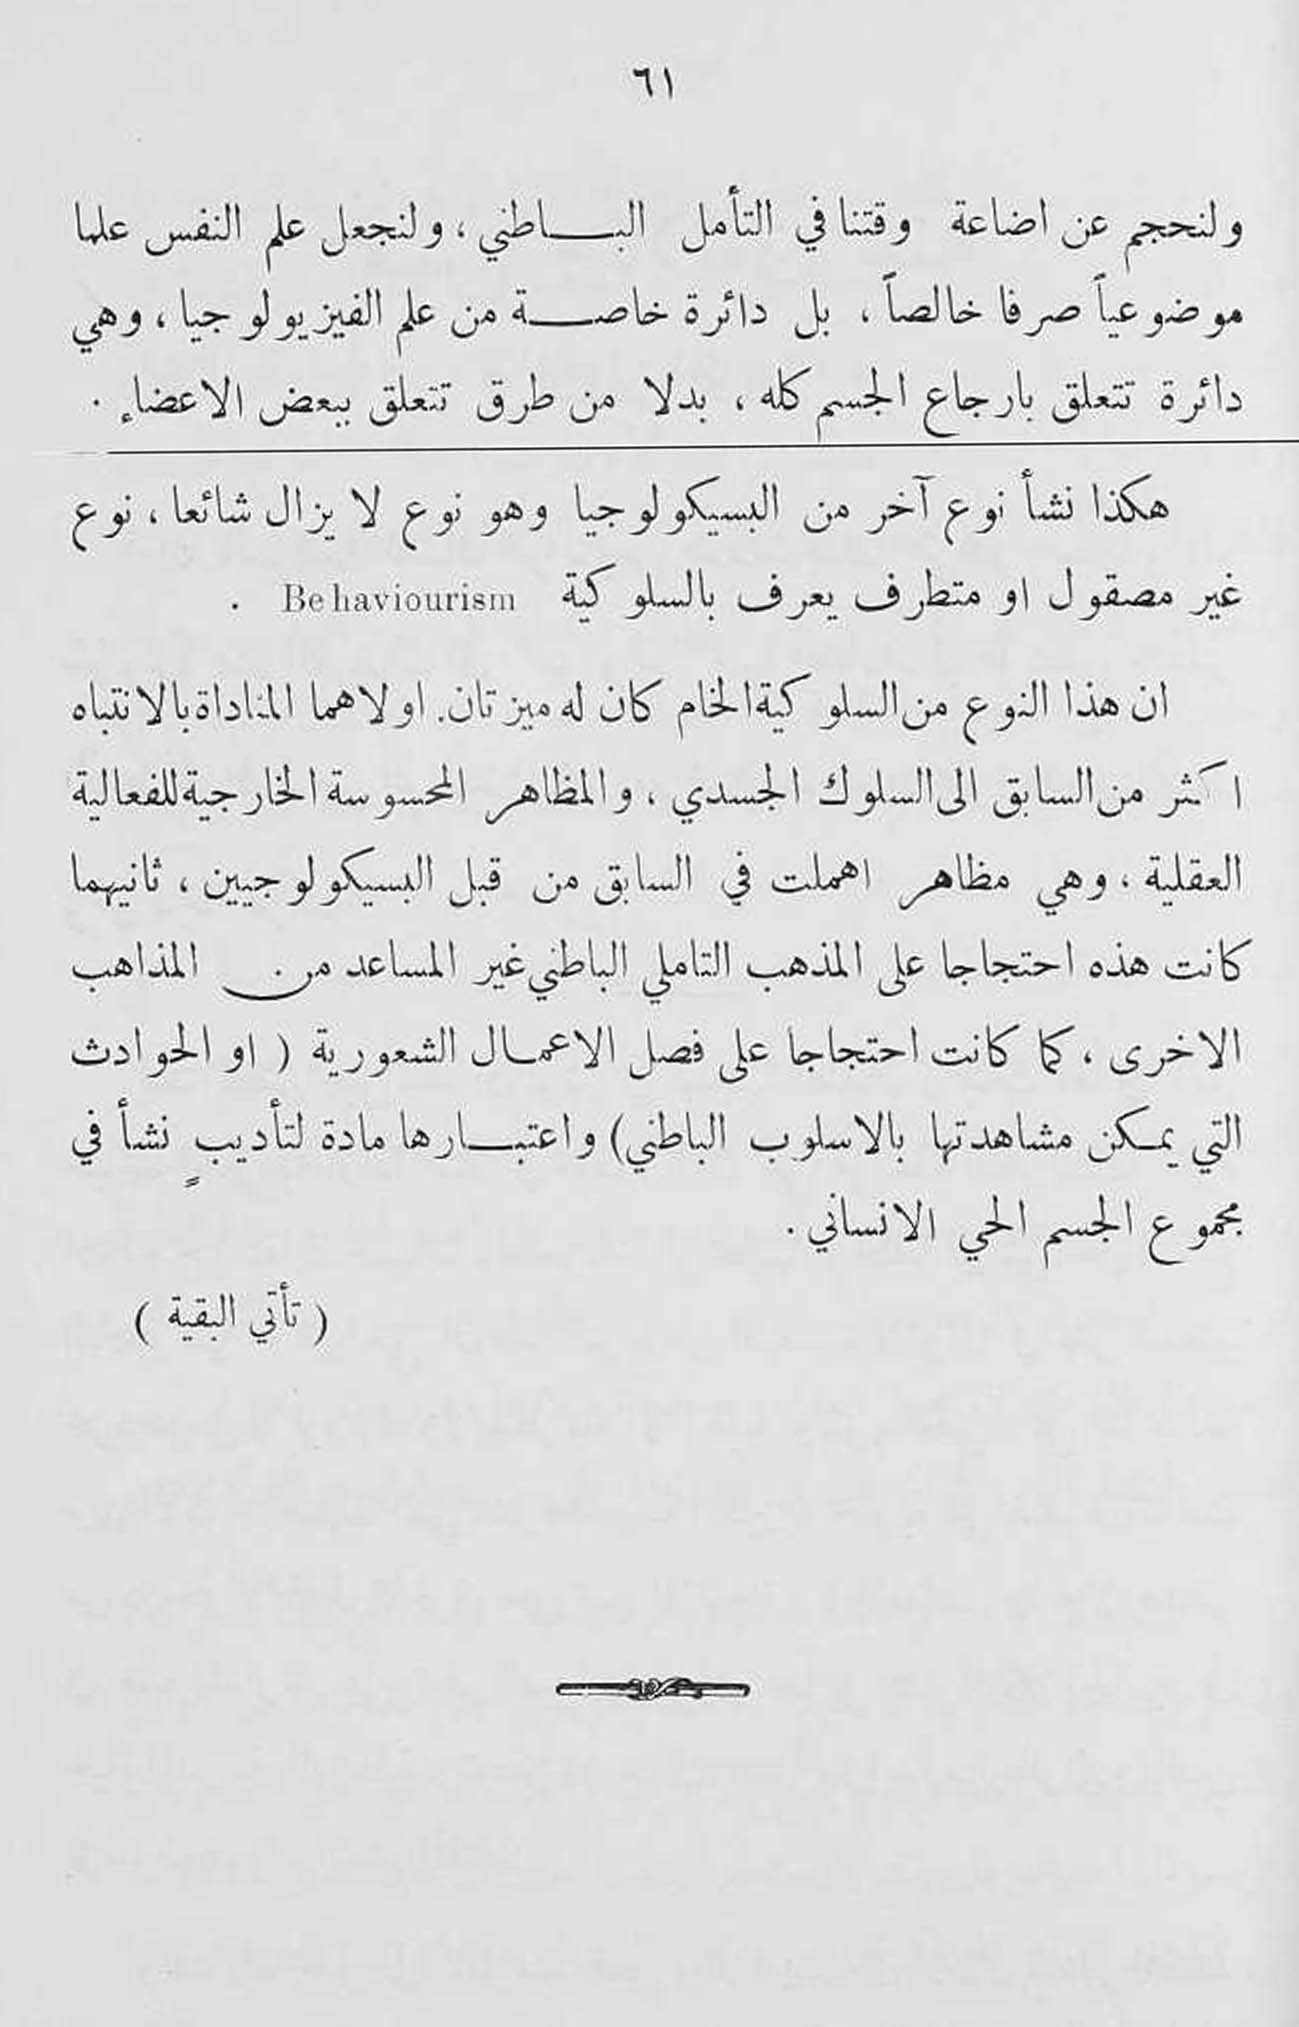 ٦١
ولنحجم عن اضاعة وقتنا في التأمل البـاطني ، ولنجعل علم النفس علما
موضوعياً صرفا خالصاً ، بل دائرة خاصـة من علم الفيزيولوجيا ، وهي
دائرة تتعلق بارجاع الجسم كله ، بدلا من طرق تتعلق ببعض الاعضاء .
هكذا نشأ نوع آخر من البسيكولوجيا وهو نوع لا يزال شائعا ، نوع
غير مصقول او متطرف يعرف بالسلوكية Behaviourism .
ان هذا النوع من السلوكية الخام كان له ميزتان. اولاهما المناداة بالانتباه
اكثر من السابق الى السلوك الجسدي ، والمظاهر المحسوسة الخارجية للفعالية
العقلية ، وهي مظاهر اهملت في السابق من قبل البسيكولوجيين ، ثانيهما
كانت هذه احتجاجا على المذهب التاملي الباطني غير المساعد من المذاهب
الاخرى ، كما كانت احتجاجا على فصل الاعمـال الشعورية ( او الحوادث
التي يمـكن مشاهدتها بالاسلوب الباطني) واعتبـارها مادة لتأديبٍ نشأ في
مجموع الجسم الحي الانساني .
( تأتي البقية )